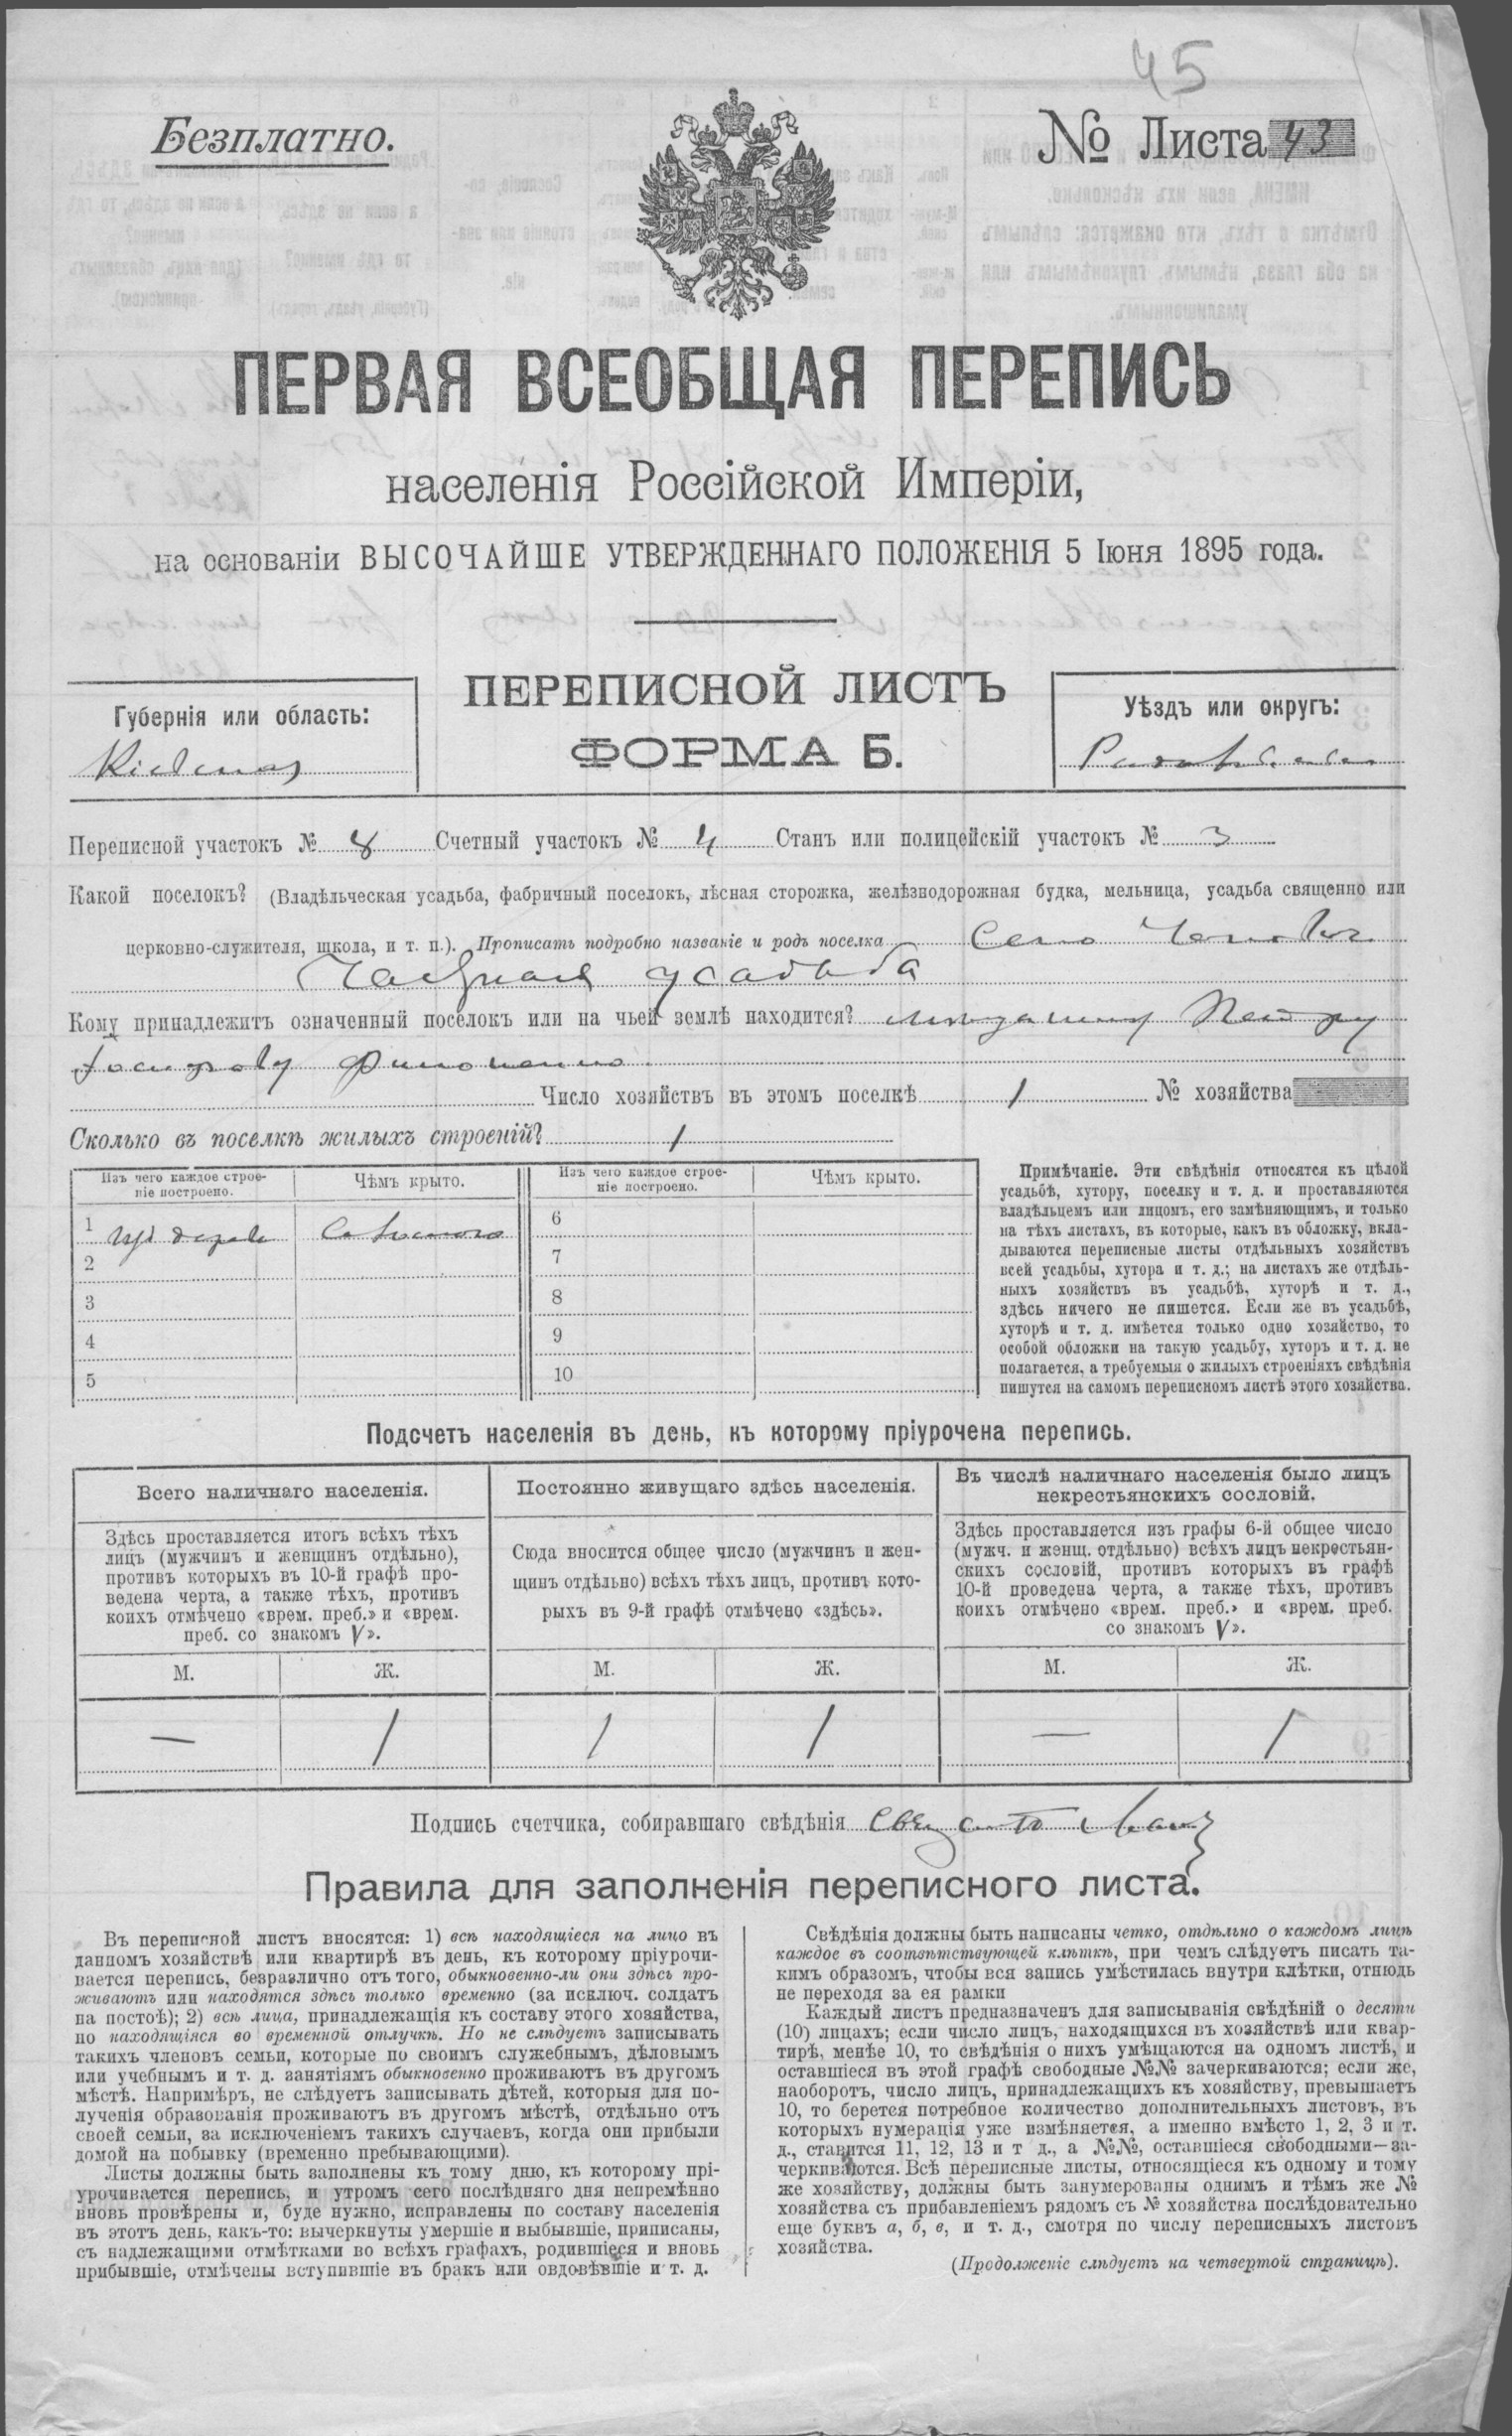 45
Безплатно.
№ Листа 43
ПЕРВАЯ ВСЕОБЩАЯ ПЕРЕПИСЬ
населенія Россійской Имперіи,
на основаніи ВЫСОЧАЙШЕ УТВЕРЖДЕННАГО ПОЛОЖЕНІЯ 5 Іюня 1895 года.
ПЕРЕПИСНОЙ ЛИСТЪ
ФОРМА Б.
Губернія или область:
Кіевская
Уѣздъ или округъ:
Переписной участокъ № 8 Счетный участокъ № 4 Станъ или полицейскій участокъ № 3
Какой поселокъ? (Владѣльческая усадьба, фабричный поселокъ, лѣсная сторожка, желѣзнодорожная будка, мельница, усадьба священно или
церковно-служителя, школа, и т. п.). Прописать подробно названіе и родъ поселка Село
усадьба
Кому принадлежитъ означенный поселокъ или на чьей землѣ находится? мѣщанину Петру
Число хозяйствъ въ этомъ поселкѣ 1 № хозяйства
Сколько въ поселкѣ жилыхъ строеній? 1
Изъ чего каждое строе-
ніе построено.
Чѣмъ крыто.
Изъ чего каждое строе-
ніе построено.
Чѣмъ крыто.
1 изъ дерева Соломою
2
3
4
5
6
7
8
9
10
Примѣчаніе. Эти свѣдѣнія относятся къ цѣлой
усадьбѣ, хутору, поселку и т. д. и проставляются
владѣльцемъ или лицомъ, его замѣняющимъ, и только
на тѣхъ листахъ, въ которые, какъ въ обложку, вкла-
дываются переписные листы отдѣльныхъ хозяйствъ
всей усадьбы, хутора и т. д.; на листахъ же отдѣль-
ныхъ хозяйствъ въ усадьбѣ, хуторѣ и т. д.,
здѣсь ничего не пишется. Если же въ усадьбѣ,
хуторѣ и т. д. имѣется только одно хозяйство, то
особой обложки на такую усадьбу, хуторъ и т. д. не
полагается, а требуемыя о жилыхъ строеніяхъ свѣдѣнія
пишутся на самомъ переписномъ листѣ этого хозяйства.
Подсчетъ населенія въ день, къ которому пріурочена перепись.
Всего наличнаго населенія.
Здѣсь проставляется итогъ всѣхъ тѣхъ
лицъ (мужчинъ и женщинъ отдѣльно),
противъ которыхъ въ 10-й графѣ про-
ведена черта, а также тѣхъ, противъ
коихъ отмѣчено «врем. преб.» и «врем.
преб. со знакомъ V».
М. Ж.
— 1
Постоянно живущаго здѣсь населенія.
Сюда вносится общее число (мужчинъ и жен-
щинъ отдѣльно) всѣхъ тѣхъ лицъ, противъ кото-
рыхъ въ 9-й графѣ отмѣчено «здѣсь».
М. Ж.
1 1
Въ числѣ наличнаго населенія было лицъ
некрестьянскихъ сословій.
Здѣсь проставляется изъ графы 6-й общее число
(мужч. и женщ. отдѣльно) всѣхъ лицъ некрестьян-
скихъ сословій, противъ которыхъ въ графѣ
10-й проведена черта, а также тѣхъ, противъ
коихъ отмѣчено «врем. преб.» и «врем. преб.
со знакомъ V».
М. Ж.
— 1
Подпись счетчика, собиравшаго свѣдѣнія
Правила для заполненія переписного листа.
Въ переписной листъ вносятся: 1) всѣ находящіеся на лицо въ
данномъ хозяйствѣ или квартирѣ въ день, къ которому пріурочи-
вается перепись, безразлично отъ того, обыкновенно-ли они здѣсь про-
живаютъ или находятся здѣсь только временно (за исключ. солдатъ
на постоѣ); 2) всѣ лица, принадлежащія къ составу этого хозяйства,
но находящіяся во временной отлучкѣ. Но не слѣдуетъ записывать
такихъ членовъ семьи, которые по своимъ служебнымъ, дѣловымъ
или учебнымъ и т. д. занятіямъ обыкновенно проживаютъ въ другомъ
мѣстѣ. Напримѣръ, не слѣдуетъ записывать дѣтей, которыя для по-
лученія образованія проживаютъ въ другомъ мѣстѣ, отдѣльно отъ
своей семьи, за исключеніемъ такихъ случаевъ, когда они прибыли
домой на побывку (временно пребывающими).
Листы должны быть заполнены къ тому дню, къ которому прі-
урочивается перепись, и утромъ сего послѣдняго дня непремѣнно
вновь провѣрены и, буде нужно, исправлены по составу населенія
въ этотъ день, какъ-то: вычеркнуты умершіе и выбывшіе, приписаны,
съ надлежащими отмѣтками во всѣхъ графахъ, родившіеся и вновь
прибывшіе, отмѣчены вступившіе въ бракъ или овдовѣвшіе и т. д.
Свѣдѣнія должны быть написаны четко, отдѣльно о каждомъ лицѣ
каждое въ соотвѣтствующей клѣткѣ, при чемъ слѣдуетъ писать та-
кимъ образомъ, чтобы вся запись умѣстилась внутри клѣтки, отнюдь
не переходя за ея рамки
Каждый листъ предназначенъ для записыванія свѣдѣній о десяти
(10) лицахъ; если число лицъ, находящихся въ хозяйствѣ или квар-
тирѣ, менѣе 10, то свѣдѣнія о нихъ умѣщаются на одномъ листѣ, и
оставшіеся въ этой графѣ свободные №№ зачеркиваются; если же,
наоборотъ, число лицъ, принадлежащихъ къ хозяйству, превышаетъ
10, то берется потребное количество дополнительныхъ листовъ, въ
которыхъ нумерація уже измѣняется, а именно вмѣсто 1, 2, 3 и т.
д., ставится 11, 12, 13 и т д., а №№, оставшіеся свободными—за-
черкиваются. Всѣ переписные листы, относящіеся къ одному и тому
же хозяйству, должны быть занумерованы однимъ и тѣмъ же №
хозяйства съ прибавленіемъ рядомъ съ № хозяйства послѣдовательно
еще буквъ а, б, в, и т. д., смотря по числу переписныхъ листовъ
хозяйства.
(Продолженіе слѣдуетъ на четвертой страницѣ).